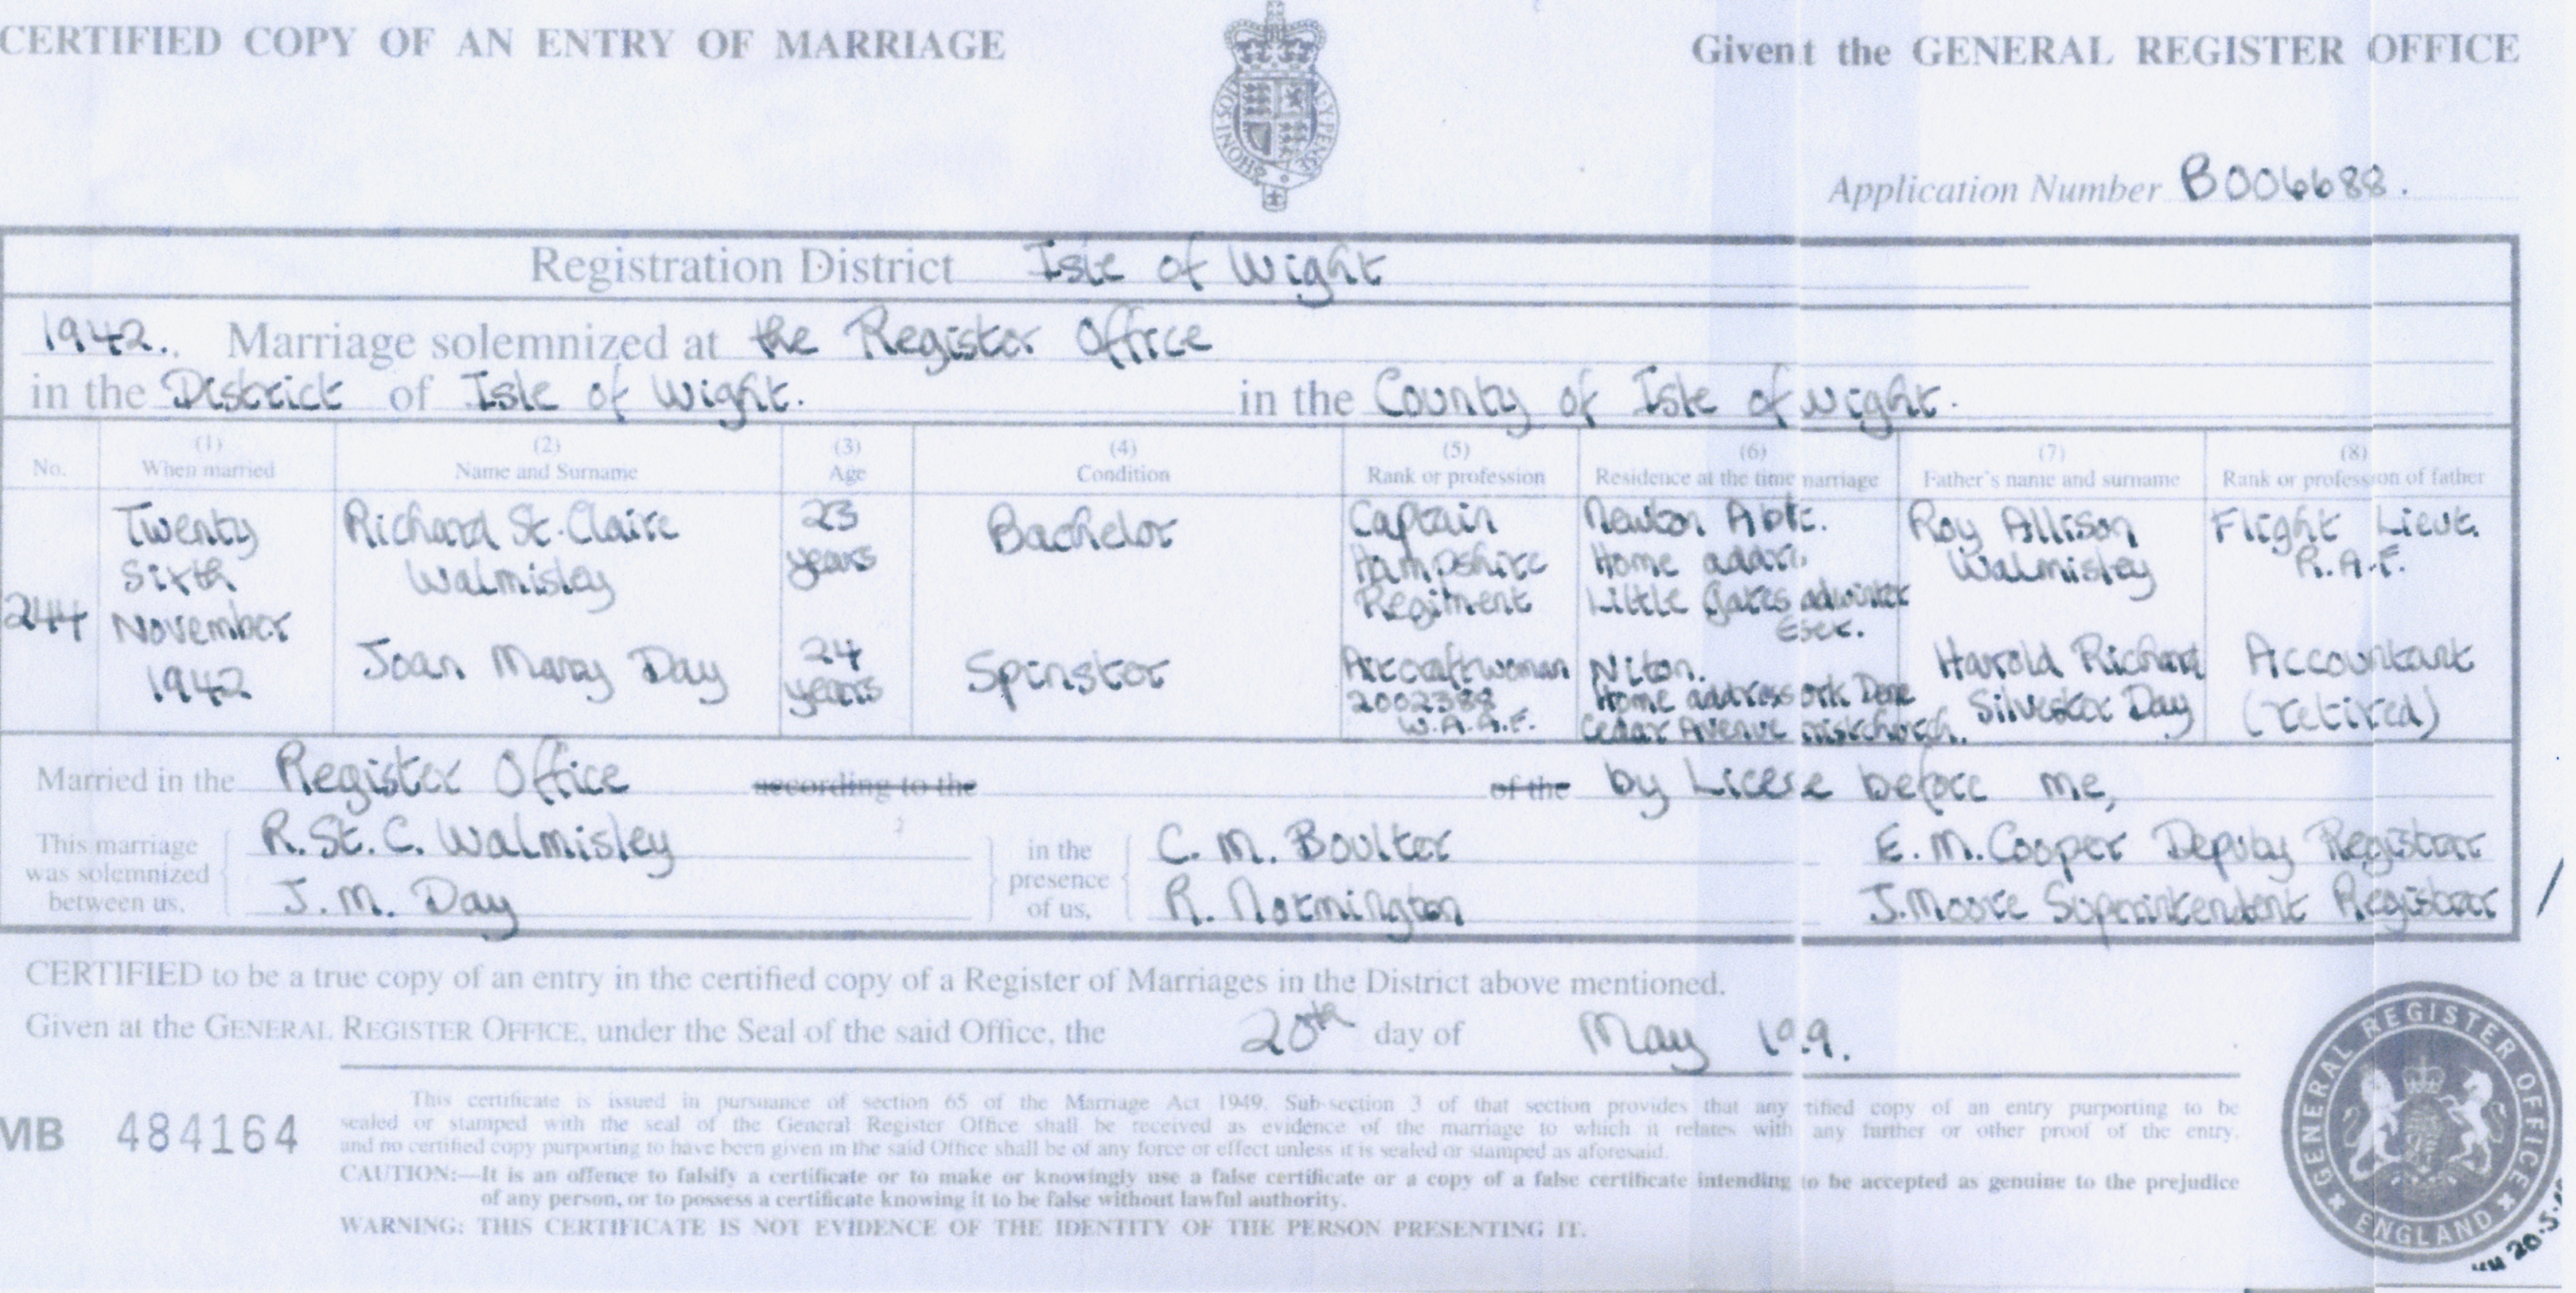 CERTIFIED COPY OF AN ENTRY OF MARRIAGE
Given t the GENERAL REGISTER OFFICE
Application Number B006688.
Registration District Isle of Wight
1942. Marriage solemnized at the Register Office
in the District of Isle of Wight. in the County of Isle of Wight.
No.
(1) When married
(2) Name and Surname
(3) Age
(4) Condition
(5) Rank or profession
(6) Residence at the time marriage
(7) Father's name and surname
(8) Rank or profession of father
244
Twenty
Sixth
November
1942
Richard St. Claire
Walmisley
23
years
Bachelor
Captain
Hampshire
Regiment
Newton Abbt.
Home
Little
Roy Allison
Walmisley
Flight Lieut.
R.A.F.
Joan Mary Day
24
years
Spinster
Aircraftwoman
2002388
W.A.A.F.
Niton.
Home address ork Dene
Cedar Avenue
Harold Richard
Silvester Day
Accountant
(retired)
Married in the Register Office according to the of the by Licese before me,
This marriage
was solemnized
between us,
R. St. C. Walmisley
J. M. Day
in the
presence
of us,
C. M. Boulter
R. Normington
E. M. Cooper Deputy Registrar
J. Moore Superintendent Registrar
CERTIFIED to be a true copy of an entry in the certified copy of a Register of Marriages in the District above mentioned.
Given at the GENERAL REGISTER OFFICE, under the Seal of the said Office, the 20th day of May
MB 484164
This certificate is issued in pursuance of section 65 of the Marriage Act 1949. Sub-section 3 of that section provides that any tified copy of an entry purporting to be
sealed or stamped with the seal of the General Register Office shall be received as evidence of the marriage to which it relates with any further or other proof of the entry,
and no certified copy purporting to have been given in the said Office shall be of any force or effect unless it is sealed or stamped as aforesaid.
CAUTION:—It is an offence to falsify a certificate or to make or knowingly use a false certificate or a copy of a false certificate intending to be accepted as genuine to the prejudice
of any person, or to possess a certificate knowing it to be false without lawful authority.
WARNING: THIS CERTIFICATE IS NOT EVIDENCE OF THE IDENTITY OF THE PERSON PRESENTING IT.
GENERAL REGISTER OFFICE
ENGLAND